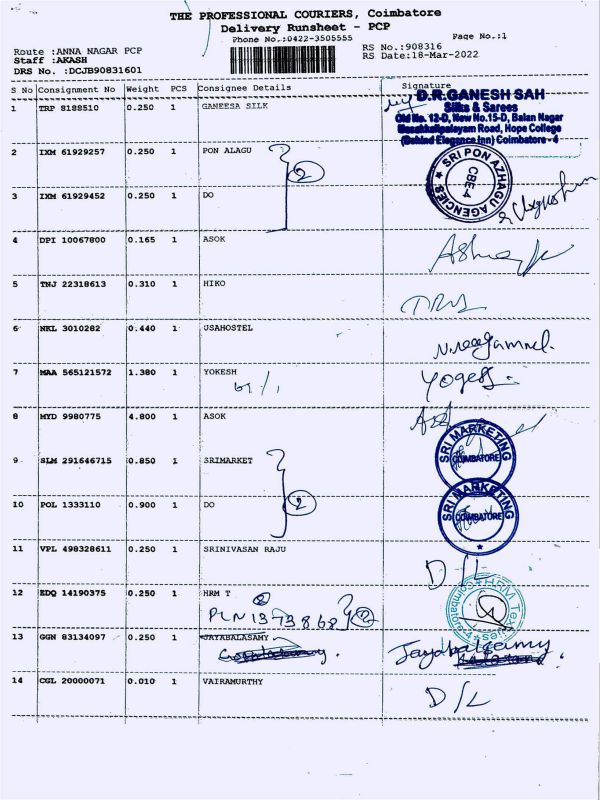 THE PROFESSIONAL COURIERS, Coimbatore
Delivery Runsheet - PCP
Phone No.:0422-3505555
Page No.:1
Route :ANNA NAGAR PCP
Staff :AKASH
DRS No. :DCJB90831601
RS No.:908316
RS Date:18-Mar-2022
S No Consignment No Weight PCS Consignee Details Signature
1 TRP 8188510 0.250 1 GANEESA SILK
D.R.GANESH SAH
Silks & Sarees
Old No. 12-D, New No.15-D, Balan Nagar
Masakkalipalayam Road, Hope College
(Behind Elegance Inn) Coimbatore - 4
2 IXM 61929257 0.250 1 PON ALAGU
2
SRI PON AZHAGU AGENCIES
CBE-4
3 IXM 61929452 0.250 1 DO
4 DPI 10067800 0.165 1 ASOK
5 TNJ 22318613 0.310 1 HIKO
6 NKL 3010282 0.440 1 USAHOSTEL
7 MAA 565121572 1.380 1 YOKESH
Yogesh.
8 MYD 9980775 4.800 1 ASOK
9 SLM 291646715 0.850 1 SRIMARKET
2
SRI MARKETING
COIMBATORE
10 POL 1333110 0.900 1 DO
SRI MARKETING
COIMBATORE
11 VPL 498328611 0.250 1 SRINIVASAN RAJU
D/L
12 EDQ 14190375 0.250 1 HRM T
PLN 1373868 2
HRM Textiles
Coimbatore-4
13 GGN 83134097 0.250 1 JAYABALASAMY
Jayabalsamy
14 CGL 20000071 0.010 1 VAIRAMURTHY
D/L